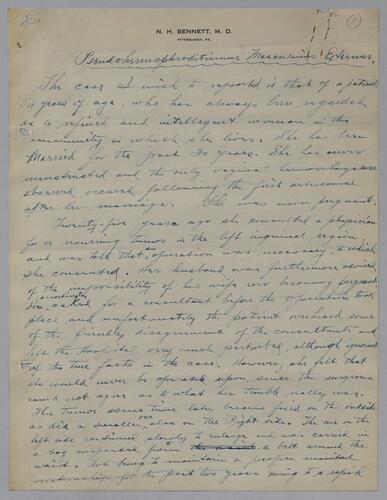 N. H. BENNETT, M. D.
PITTSBURGH, PA.
1
Pseudohermaphroditismus Masculinus Externus.
The case I wish to reported is that of a patient
54 years of age, who has always been regarded
as a refined and intelligent woman in the
community in which she lives. She has been
Married for the past 30 years. She has never
menstruated and the only vaginal hemorrhage ever
observed, occured following the first intercourse
after her marriage. She was never pregnant.
Twenty-five years ago she consulted a physician
for a recurring tumor in the left inguinal region,
and was told that an operation was necessary, to which
she consented. Her husband was furthermore advised
of the impossibility of his wife ever becoming pregnant.
He, accordingly, asked for a consultant before the operation took
place, and unfortunately the patient overheard some
of the friendly disagreement of the consultants and
left the Hospital very much perturbed, although ignorant
of the true facts in the case. However, she felt that
she would never be operated upon, since the surgeons
could not agree as to what her trouble really was.
This tumor some time later became fixed on the outside
as did a smaller one, also on the Right side. The one on the
left side continued slowly to enlarge and was carried in
a bag suspended from a belt around the
waist. Not being able to maintain a proper marital
relationship for the past two years owing to a rapid